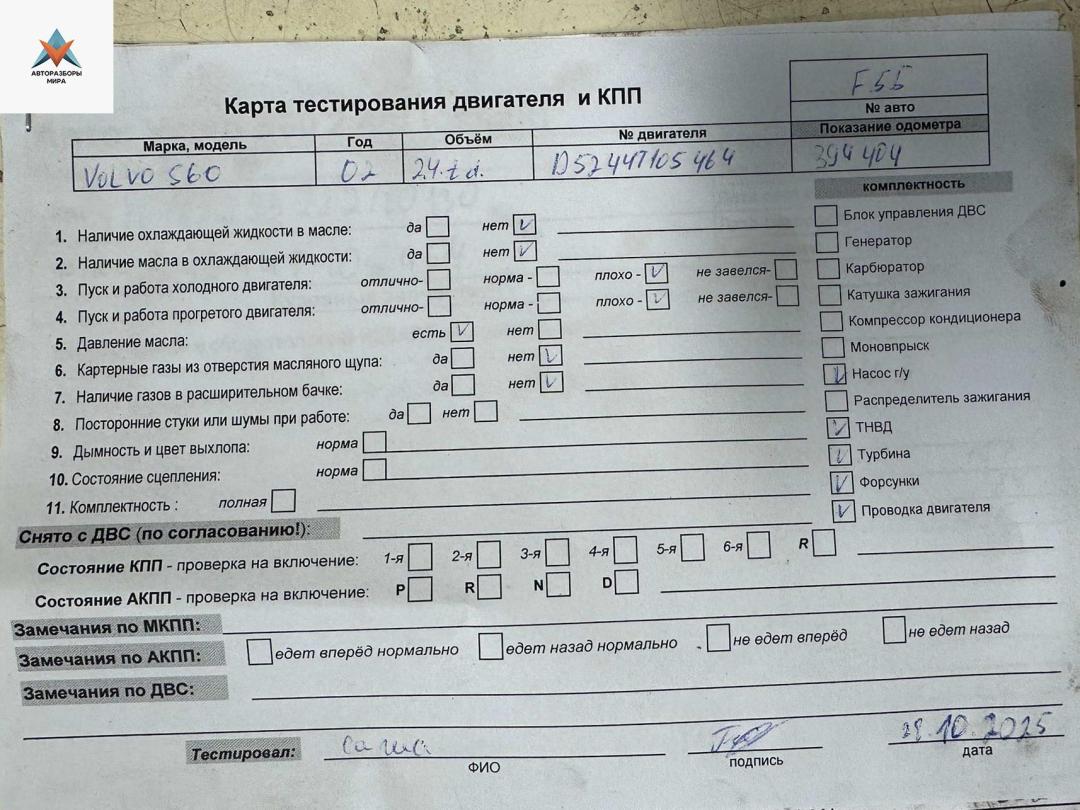 АВТОРАЗБОРЫ
МИРА
Карта тестирования двигателя и КПП
F55
№ авто
Марка, модель Год Объём № двигателя Показание одометра
VOLVO S60 02 2.4.t.d. D5244T105464 394404
комплектность
1. Наличие охлаждающей жидкости в масле: да нет
2. Наличие масла в охлаждающей жидкости: да нет
3. Пуск и работа холодного двигателя: отлично- норма - плохо - не завелся-
4. Пуск и работа прогретого двигателя: отлично- норма - плохо - не завелся-
5. Давление масла: есть нет
6. Картерные газы из отверстия масляного щупа: да нет
7. Наличие газов в расширительном бачке: да нет
8. Посторонние стуки или шумы при работе: да нет
9. Дымность и цвет выхлопа: норма
10. Состояние сцепления: норма
11. Комплектность : полная
Блок управления ДВС
Генератор
Карбюратор
Катушка зажигания
Компрессор кондиционера
Моновпрыск
Насос г/у
Распределитель зажигания
ТНВД
Турбина
Форсунки
Проводка двигателя
Снято с ДВС (по согласованию!):
Состояние КПП - проверка на включение: 1-я 2-я 3-я 4-я 5-я 6-я R
Состояние АКПП - проверка на включение: P R N D
Замечания по МКПП:
Замечания по АКПП: едет вперёд нормально едет назад нормально не едет вперёд не едет назад
Замечания по ДВС:
Тестировал: Саша 29.10.2025
ФИО подпись дата